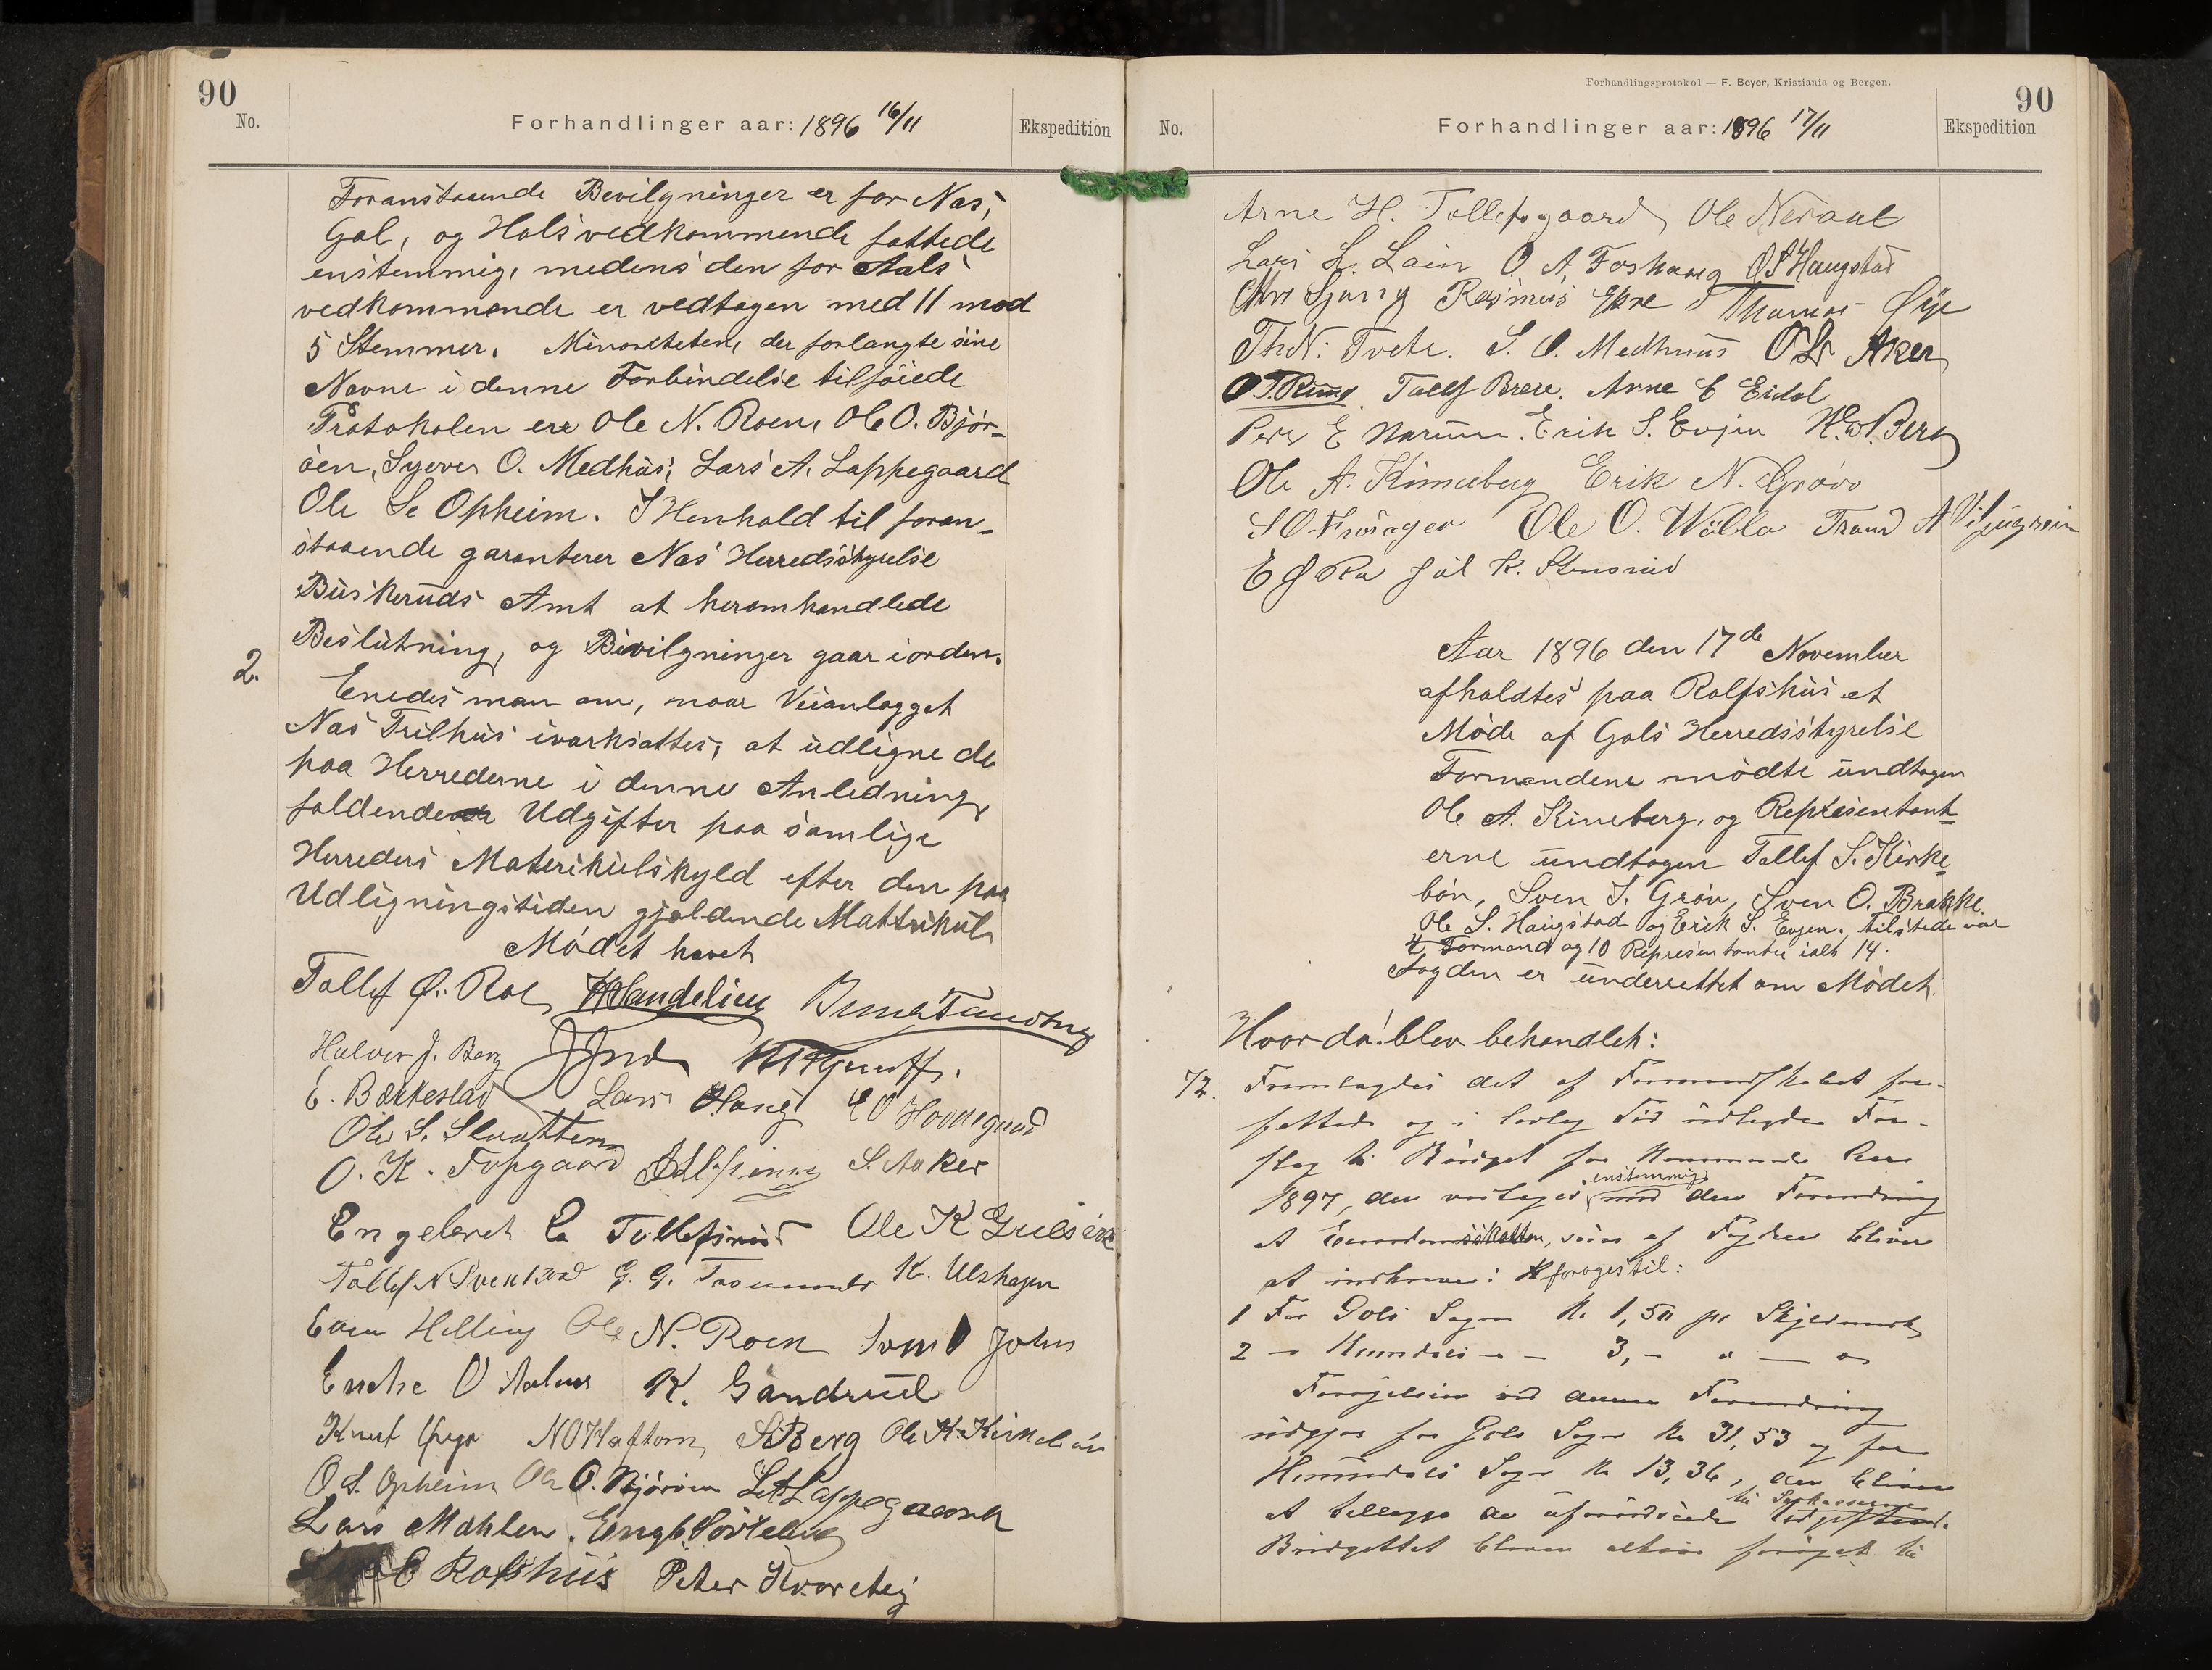 90
No.
Forhandlinger aar: 1896 16/11
Ekspedition
Foranstaaende Bevilgninger er for Nas,
Gol, og Hols vedkommende fattede
enstemmig, medens den for Aals
vedkommende er vedtagen med 11 mod
5 Stemmer. Minoriteten, der forlangte sine
Navne i denne Forbindelse tilføiede
Protokolen ere Ole N. Roen, Ole O. Bjør-
øen, Syver O. Medhus, Lars A. Lappegaard
Ole S. Opheim. I Henhold til foran-
staaende garanterer Nas Herredsstyrelse
Buskeruds Amt at heromhandlede
Beslutning, og Bevilgninger gaar iorden.
2.
Enedes man om, naar Veianlægget
Nas Trilhus ivarksattes, at udligne de
paa Herrederne i denne Anledning
faldende Udgifter paa samlige
Herreders Materikulskyld efter den paa
Udligningstiden gjældende Mattrikul
Mødet hævet
Tollef Ø. Roe
Halvor J. Berg
E. Bækkestad Lars Haug
Ole S. Slaatten
O. K. Tofsgaard S. Aaker
Engebret E. Tollefsrud Ole K Gulsvik
Tollef N Svenkerud G. G. K. Ulshagen
Even Helling Ole N. Roen
K. Gandrud
Knut NOHaftorn SBerg Ole K. Kirkebøn
O S. Opheim Ole O. Bjørøen L A Lappegaard
Lars Mahlen.
E Rolfshus Peter Kvarteig
Forhandlingsprotokol — F. Beyer, Kristiania og Bergen.
90
No.
Forhandlinger aar: 1896 17/11
Ekspedition
Arne H. Tollefsgaard Ole Neraal
Lars L. Lain O. A. Foshaug O S Haugstad
Rasmus Thomas Øye
Th N. Tvete. S. O. Medhuus O Aker
O. T. Ruud Tollef Brere. Arne E Eidal
Per E Narum. Erik S. Evjen H. Berg
Ole A. Kinneberg Erik N. Grøvo
Ole O. Wøllo Trand A Viljugrein
K. Stensrud
Aar 1896 den 17de November
afholdtes paa Rolfshus et
Møde af Gols Herredsstyrelse
Formændene mødte undtagen
Ole A. Kineberg, og Representant-
erne undtagen Tollef S. Kirke-
bøn, Sven T. Grøv, Sven O. Brakke.
Ole S. Haugstad og Erik S. Evjen. tilstede var
4 Formænd og 10 Representanter ialt 14.
Fogden er underrettet om Mødet.
Hvorda blev behandlet:
72.
Fremlagdes det af Formandskabet for-
fattede og i lovlig Tid udlagde For-
slag til Budget for kommende Aar
1897, der vedtoges enstemmig med den Forandring
at som af Fogden bliver
at indkræve: forøges til:
1 For Gols Sogn Kr 1,50 pr Skjeldmark
2 — Hemsedals — — 3,— " — "
Forøgelsen ved denne Forandring
udgjør for Gols Sogn Kr 31,53 og for
Hemsedals Sogn Kr 13,36, der bliver
at tillægge de uforudseede Udgifter
Budgettet bliver altsaa forøget til